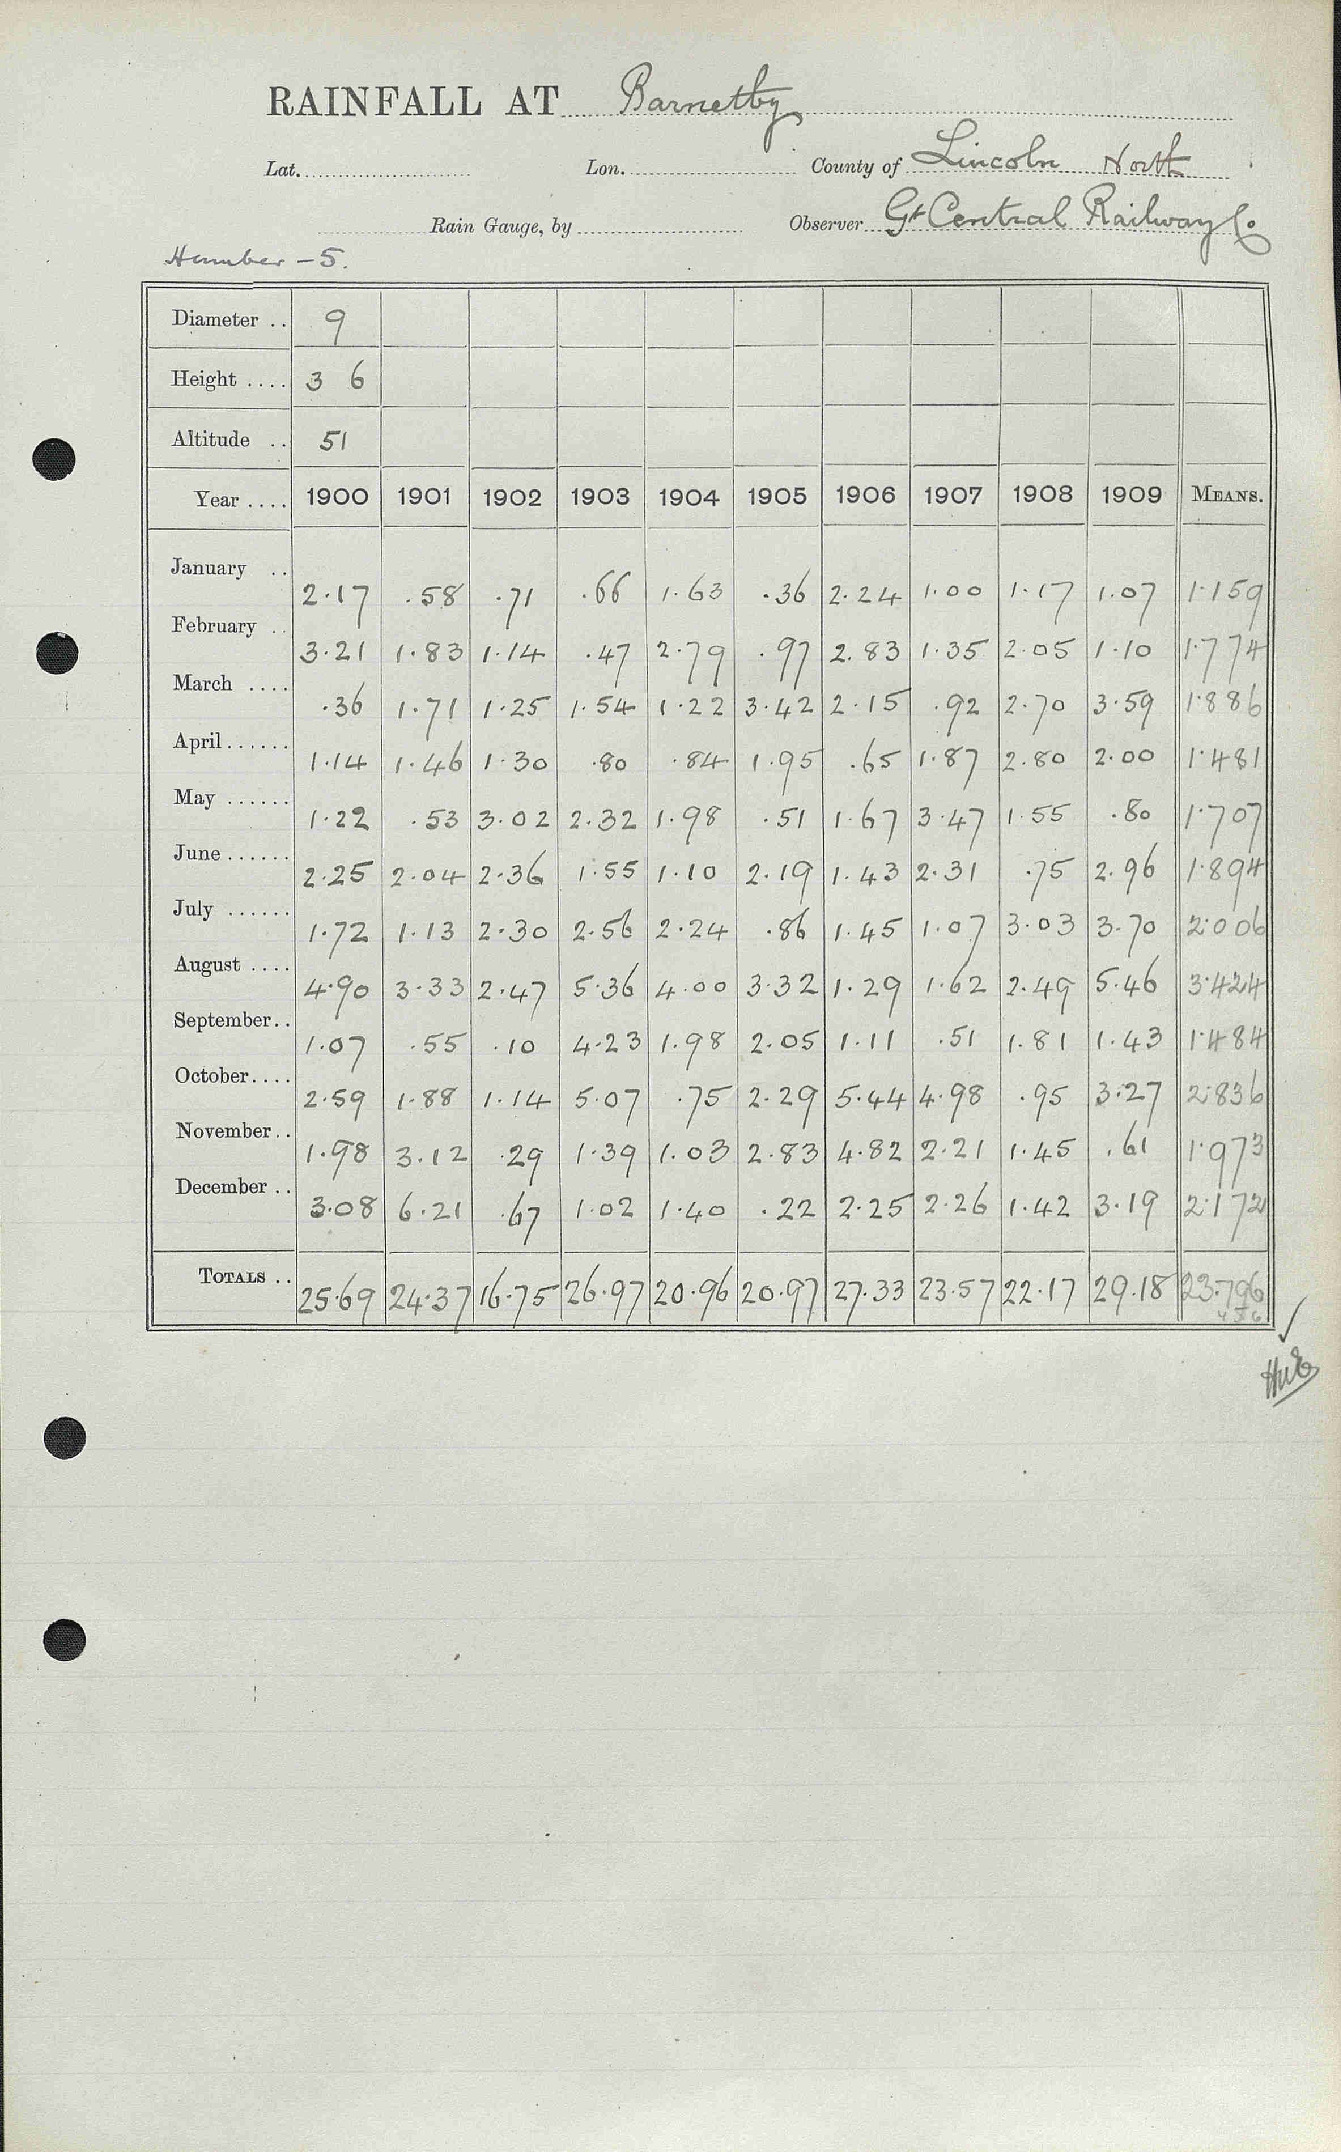 RAINFALL AT Barnetby
Lat. Lon. County of Lincoln North
Rain Gauge, by Observer Gt Central Railway Co
Humber - 5.
Diameter .. 9
Height .... 3 6
Altitude .. 51
Year .... 1900 1901 1902 1903 1904 1905 1906 1907 1908 1909 MEANS.
January .. 2.17 .58 .71 .66 1.63 .36 2.24 1.00 1.17 1.07 1.159
February .. 3.21 1.83 1.14 .47 2.79 .97 2.83 1.35 2.05 1.10 1.774
March .... .36 1.71 1.25 1.54 1.22 3.42 2.15 .92 2.70 3.59 1.886
April...... 1.14 1.46 1.30 .80 .84 1.95 .65 1.87 2.80 2.00 1.481
May ...... 1.22 .53 3.02 2.32 1.98 .51 1.67 3.47 1.55 .80 1.707
June ...... 2.25 2.04 2.36 1.55 1.10 2.19 1.43 2.31 .75 2.96 1.894
July ...... 1.72 1.13 2.30 2.56 2.24 .86 1.45 1.07 3.03 3.70 2.006
August .... 4.90 3.33 2.47 5.36 4.00 3.32 1.29 1.62 2.49 5.46 3.424
September.. 1.07 .55 .10 4.23 1.98 2.05 1.11 .51 1.81 1.43 1.484
October.... 2.59 1.88 1.14 5.07 .75 2.29 5.44 4.98 .95 3.27 2.836
November.. 1.98 3.12 .29 1.39 1.03 2.83 4.82 2.21 1.45 .61 1.973
December .. 3.08 6.21 .67 1.02 1.40 .22 2.25 2.26 1.42 3.19 2.172
TOTALS .. 25.69 24.37 16.75 26.97 20.96 20.97 27.33 23.57 22.17 29.18 23.796